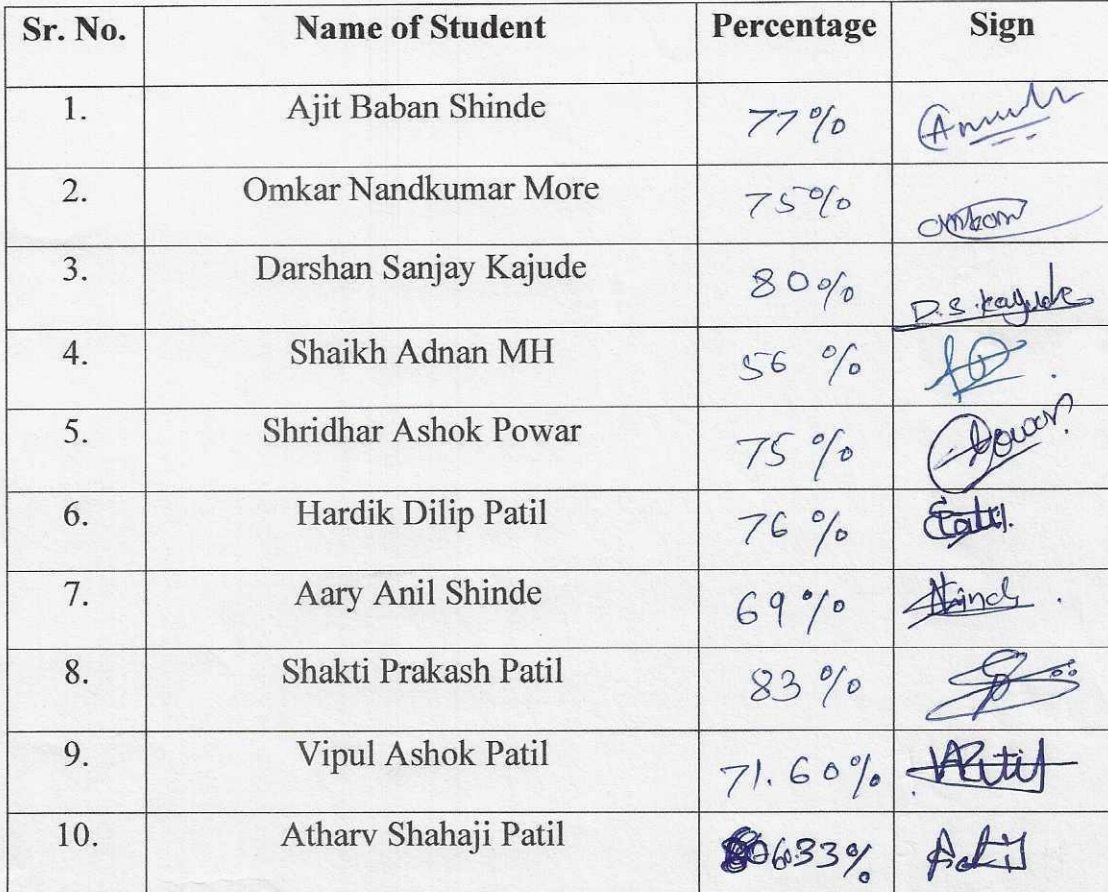 Sr. No. Name of Student Percentage Sign
1. Ajit Baban Shinde 77%
2. Omkar Nandkumar More 75% Omkar
3. Darshan Sanjay Kajude 80% D.S. Kajude
4. Shaikh Adnan MH 56 %
5. Shridhar Ashok Powar 75 % Powar
6. Hardik Dilip Patil 76 % Patil
7. Aary Anil Shinde 69 %
8. Shakti Prakash Patil 83 %
9. Vipul Ashok Patil 71.60%
10. Atharv Shahaji Patil